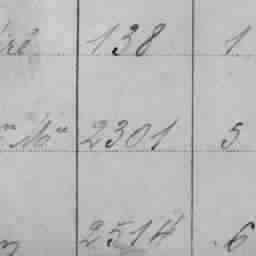 138 1
"M" 2301 5
2514 6